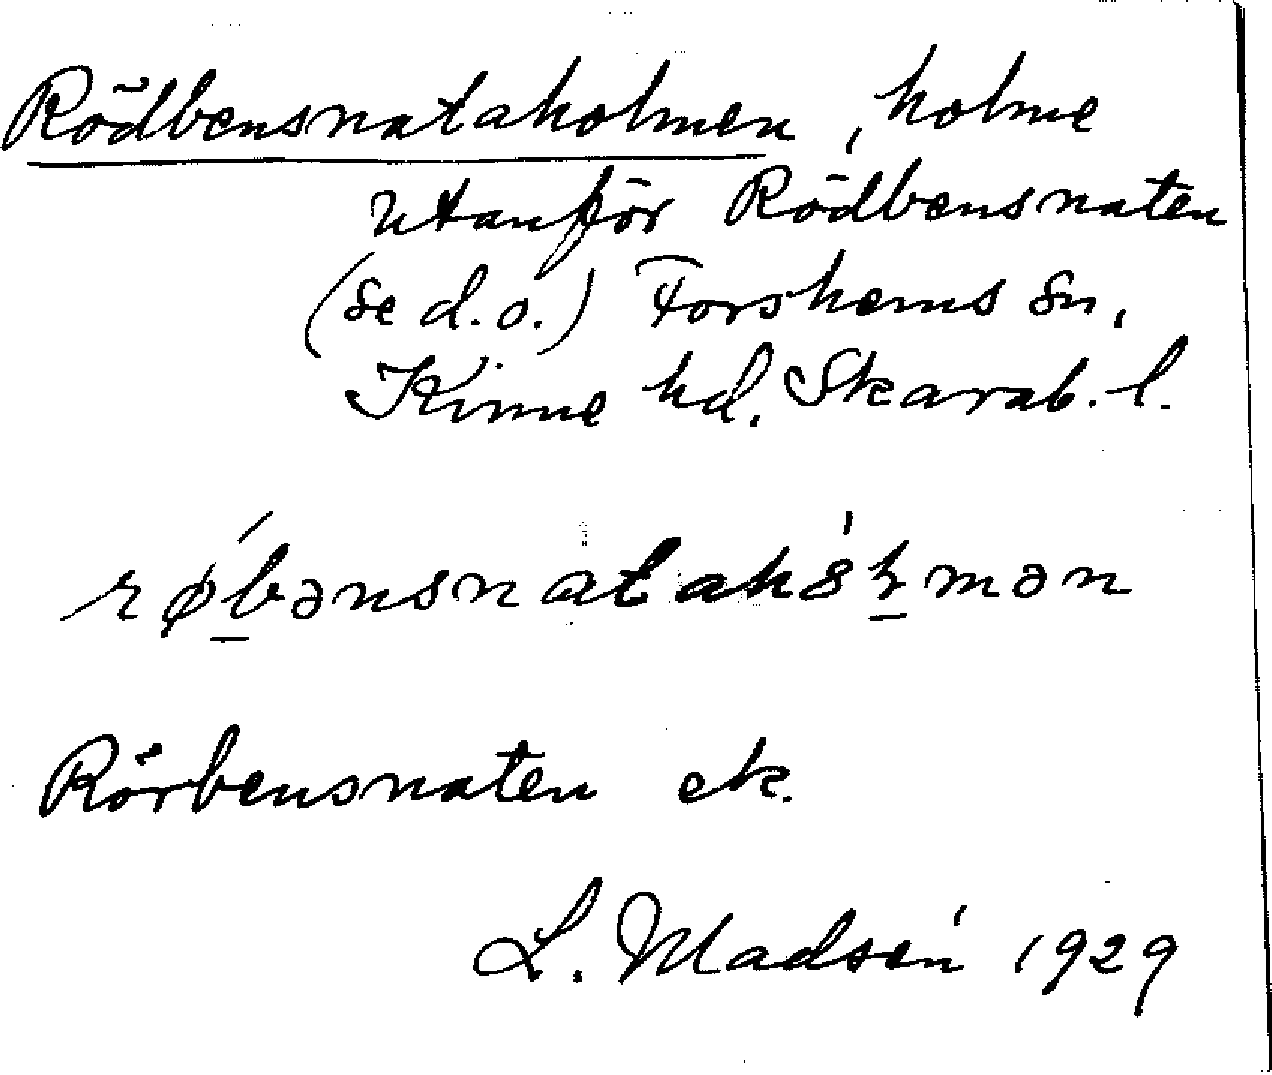 Rödbensnataholmen, holme
utanför Rödbensnaten
(se d.o.) Forshems sn,
Kinne hd. Skarab. l.
Rörbensnaten ek.
L. Madsén 1929